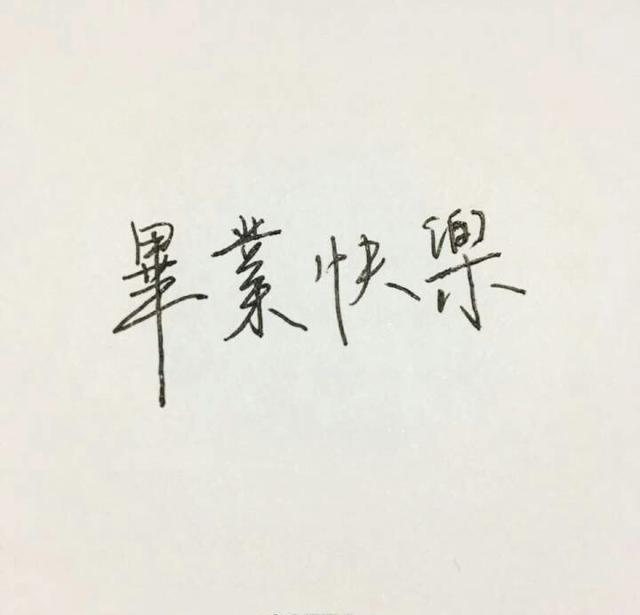 畢業快樂